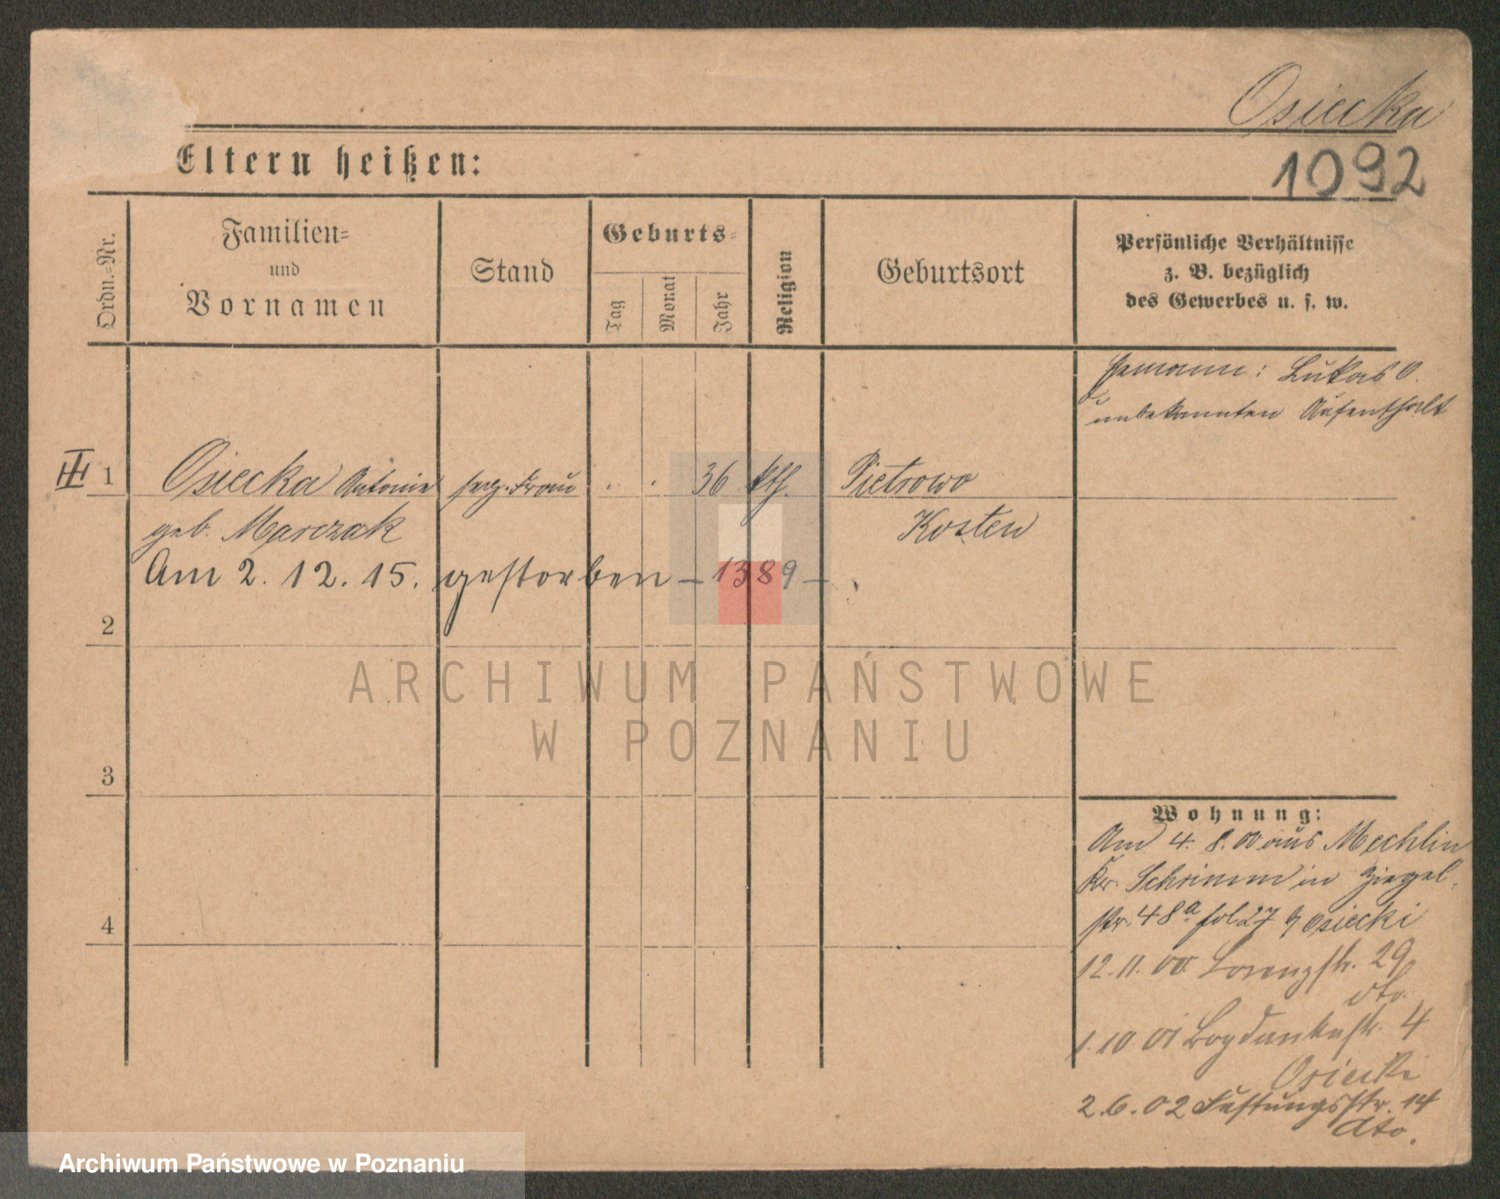 Osiecka
Eltern heißen:
1092
Ordn.-Nr.
Familien-
und
Vornamen
Stand
Geburts-
Tag
Monat
Jahr
Religion
Geburtsort
Persönliche Verhältnisse
z. B. bezüglich
des Gewerbes u. s. w.
Ehemann: Lukas O.
unbekannten Aufenthalt
III 1 Osiecka Antonie Frau 36 kth. Pietrowo
geb. Marczak Kosten
Am 2. 12. 15. gestorben – 1389 –.
2
3
4
Wohnung:
Am 4. 8. 00 aus Mechlin
Kr. Schrimm in Ziegel-
str. 48a fol 27 b Osiecki
12. 11. 00 Lorenzstr. 29
dto.
1. 10 01 Bogdankastr. 4
Osiecki
2. 6. 02 Festungsstr. 14
dto.
ARCHIWUM PAŃSTWOWE
W POZNANIU
Archiwum Państwowe w Poznaniu